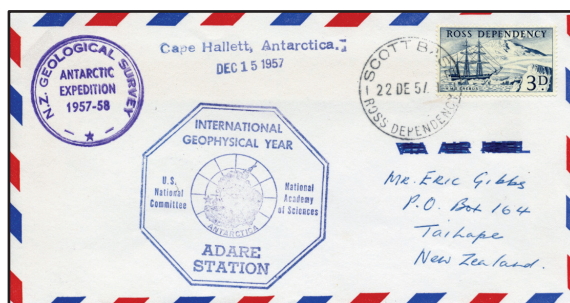 N.Z. GEOLOGICAL SURVEY
ANTARCTIC
EXPEDITION
1957-58
Cape Hallett, Antarctica.
DEC 15 1957
SCOTT BASE
22 DE 57
ROSS DEPENDENCY
ROSS DEPENDENCY
3D.
INTERNATIONAL
GEOPHYSICAL YEAR
U.S.
National
Committee
National
Academy
of Sciences
ANTARCTICA
ADARE
STATION
VIA AIR MAIL
Mr. Eric Gibbs
P.O. Box 164
Taihape
New Zealand.